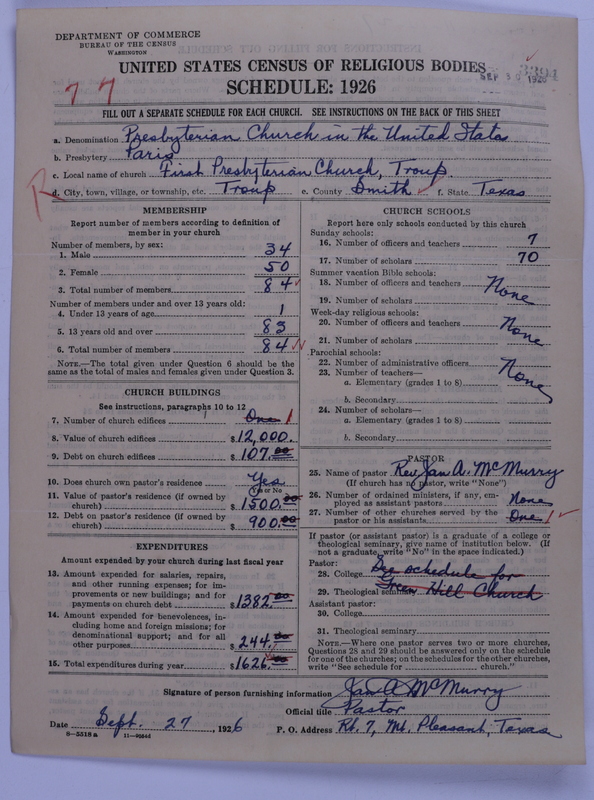 DEPARTMENT OF COMMERCE
BUREAU OF THE CENSUS
WASHINGTON
UNITED STATES CENSUS OF RELIGIOUS BODIES
SEP 30 1926
SCHEDULE: 1926
77
FILL OUT A SEPARATE SCHEDULE FOR EACH CHURCH. SEE INSTRUCTIONS ON THE BACK OF THIS SHEET
a. Denomination Presbyterian Church in the United States
b. Presbytery Paris
c. Local name of church First Presbyterian Church, Troup.
R
d. City, town, village, or township, etc. Troup e. County Smith f. State Texas
MEMBERSHIP
Report number of members according to definition of
member in your church
Number of members, by sex:
1. Male 34
2. Female 50
3. Total number of members 84
Number of members under and over 13 years old:
4. Under 13 years of age 1
5. 13 years old and over 83
6. Total number of members 84
NOTE.—The total given under Question 6 should be the
same as the total of males and females given under Question 3.
CHURCH BUILDINGS
See instructions, paragraphs 10 to 12
7. Number of church edifices One 1
8. Value of church edifices $12,000.
9. Debt on church edifices $107.00
10. Does church own pastor's residence Yes
(Yes or No)
11. Value of pastor's residence (if owned by
church) $1500.00
12. Debt on pastor's residence (if owned by
church) $900.00
EXPENDITURES
Amount expended by your church during last fiscal year
13. Amount expended for salaries, repairs,
and other running expenses; for im-
provements or new buildings; and for
payments on church debt $1382.00
14. Amount expended for benevolences, in-
cluding home and foreign missions; for
denominational support; and for all
other purposes $244.00
15. Total expenditures during year $1626.00
CHURCH SCHOOLS
Report here only schools conducted by this church
Sunday schools:
16. Number of officers and teachers 7
17. Number of scholars 70
Summer vacation Bible schools:
18. Number of officers and teachers None
19. Number of scholars
Week-day religious schools:
20. Number of officers and teachers None
21. Number of scholars
Parochial schools:
22. Number of administrative officers None
23. Number of teachers—
a. Elementary (grades 1 to 8)
b. Secondary
24. Number of scholars—
a. Elementary (grades 1 to 8)
b. Secondary
PASTOR
25. Name of pastor Rev. Jas. A. McMurry
(If church has no pastor, write "None")
26. Number of ordained ministers, if any, em-
ployed as assistant pastors None
27. Number of other churches served by the
pastor or his assistants One 1
If pastor (or assistant pastor) is a graduate of a college or
theological seminary, give name of institution below. (If
not a graduate, write "No" in the space indicated.)
Pastor:
28. College See schedule for
29. Theological seminary Hill Church
Assistant pastor:
30. College
31. Theological seminary
NOTE.—Where one pastor serves two or more churches,
Questions 28 and 29 should be answered only on the schedule
for one of the churches; on the schedules for the other churches,
write "See schedule for church."
Signature of person furnishing information Jas A McMurry
Official title Pastor
Date Sept. 27, 1926
P. O. Address Rt. 7, Mt. Pleasant, Texas
8—5518a